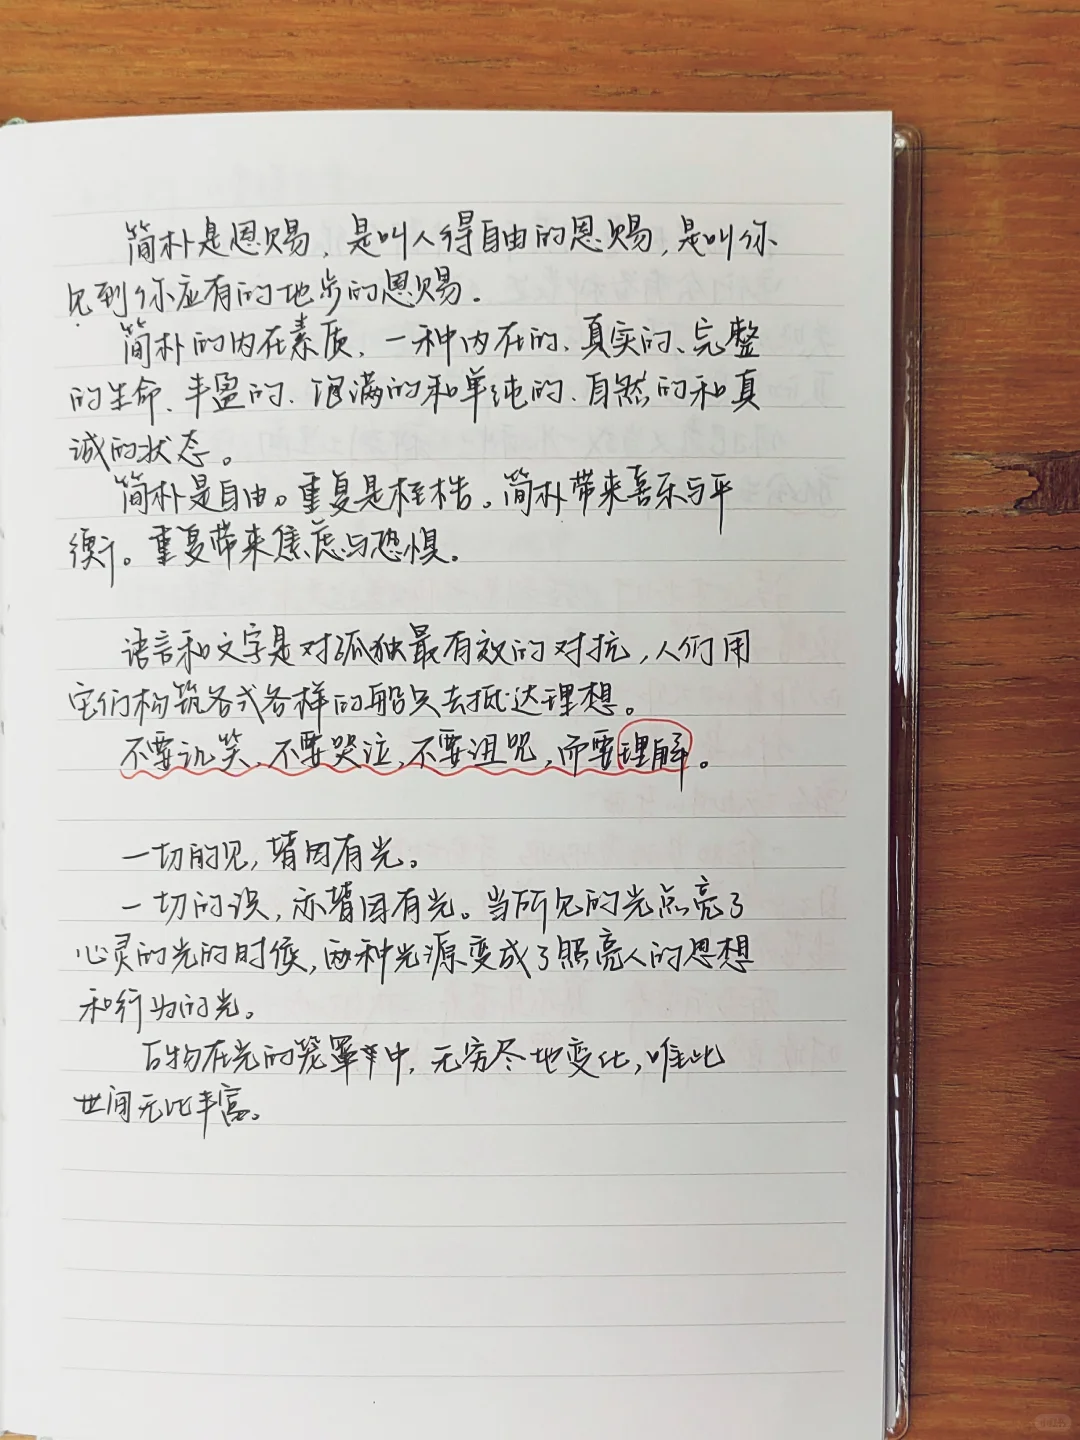 简朴是恩赐，是叫人得自由的恩赐，是叫你
见到你应有的地步的恩赐.
简朴的内在素质，一种内在的、真实的、完整
的生命、丰盈的、饱满的和单纯的、自然的和真
诚的状态。
简朴是自由。重复是桎梏。简朴带来喜乐与平
衡。重复带来焦虑与恐惧。
语言和文字是对孤独最有效的对抗，人们用
它们构筑各式各样的船只去抵达理想。
不要讥笑，不要哭泣，不要诅咒，而要理解。
一切的见，皆因有光。
一切的误，亦皆因有光。当所见的光点亮了
心灵的光的时候，两种光源变成了照亮人的思想
和行为的光。
百物在光的笼罩中，无穷尽地变化，唯此
世间无比丰富。